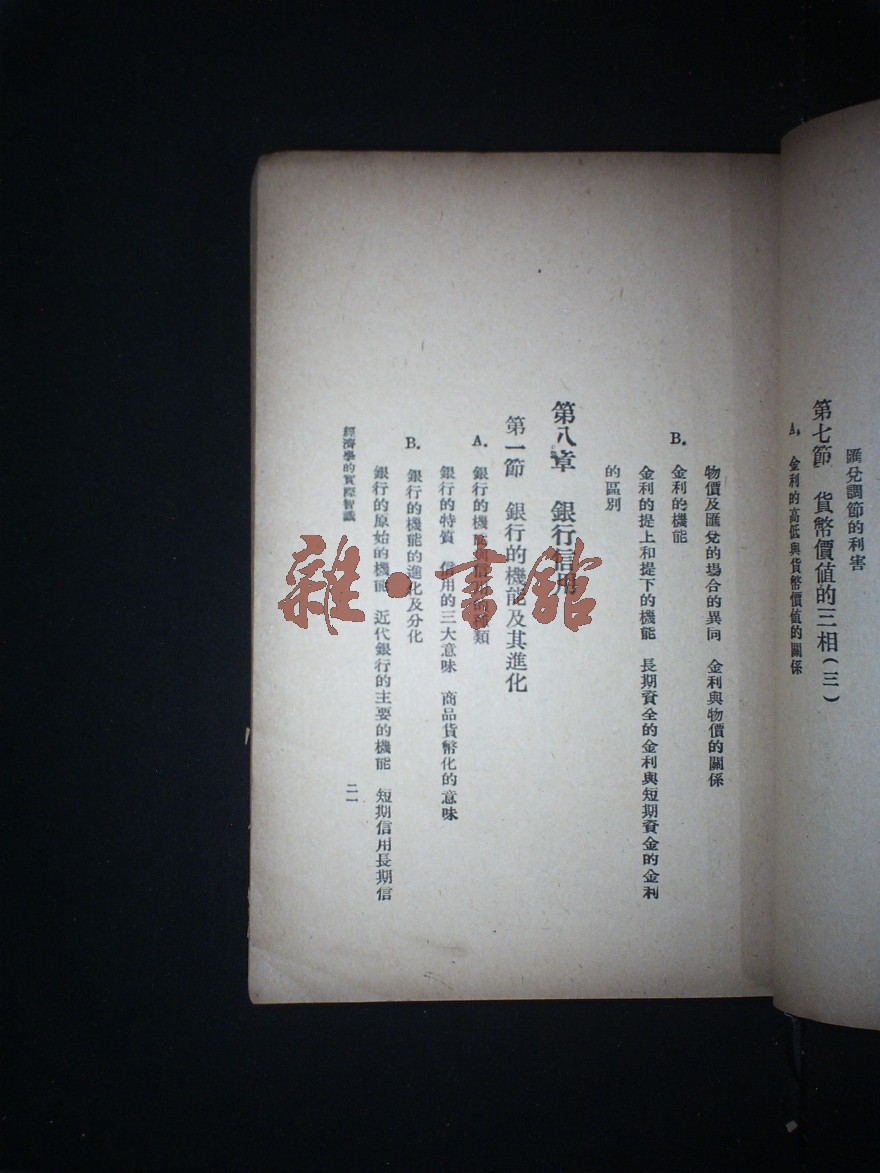 匯兌調節的利害
第七節　貨幣價值的三相(三)
A. 金利的高低與貨幣價值的關係
物價及匯兌的場合的異同　金利與物價的關係
B. 金利的機能
金利的提上和提下的機能　長期資全的金利與短期資金的金利
的區別
第八章　銀行信用
第一節　銀行的機能及其進化
A. 銀行的機能與信用的種類
銀行的特質　信用的三大意味　商品貨幣化的意味
B. 銀行的機能的進化及分化
銀行的原始的機能　近代銀行的主要的機能　短期信用長期信
經濟學的實際智識
二一
雜·書館